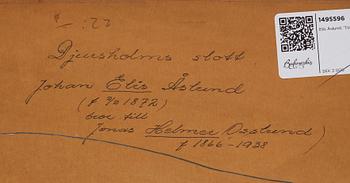 - : 22
Djursholms slott
Johan Elis Åslund
(f 1872)
bror till
Jonas Helmer Osslund)
f 1866-1938
1495596
Elis Åslund, "Trä
Bukowskis
SEK 2 00